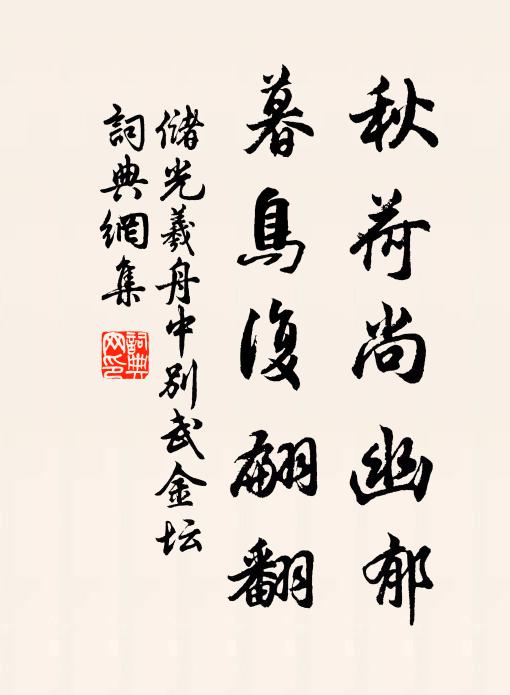 秋荷尚幽郁
暮鳥復翩翻
儲光羲舟中别武金坛
詞典網集
詞典網印